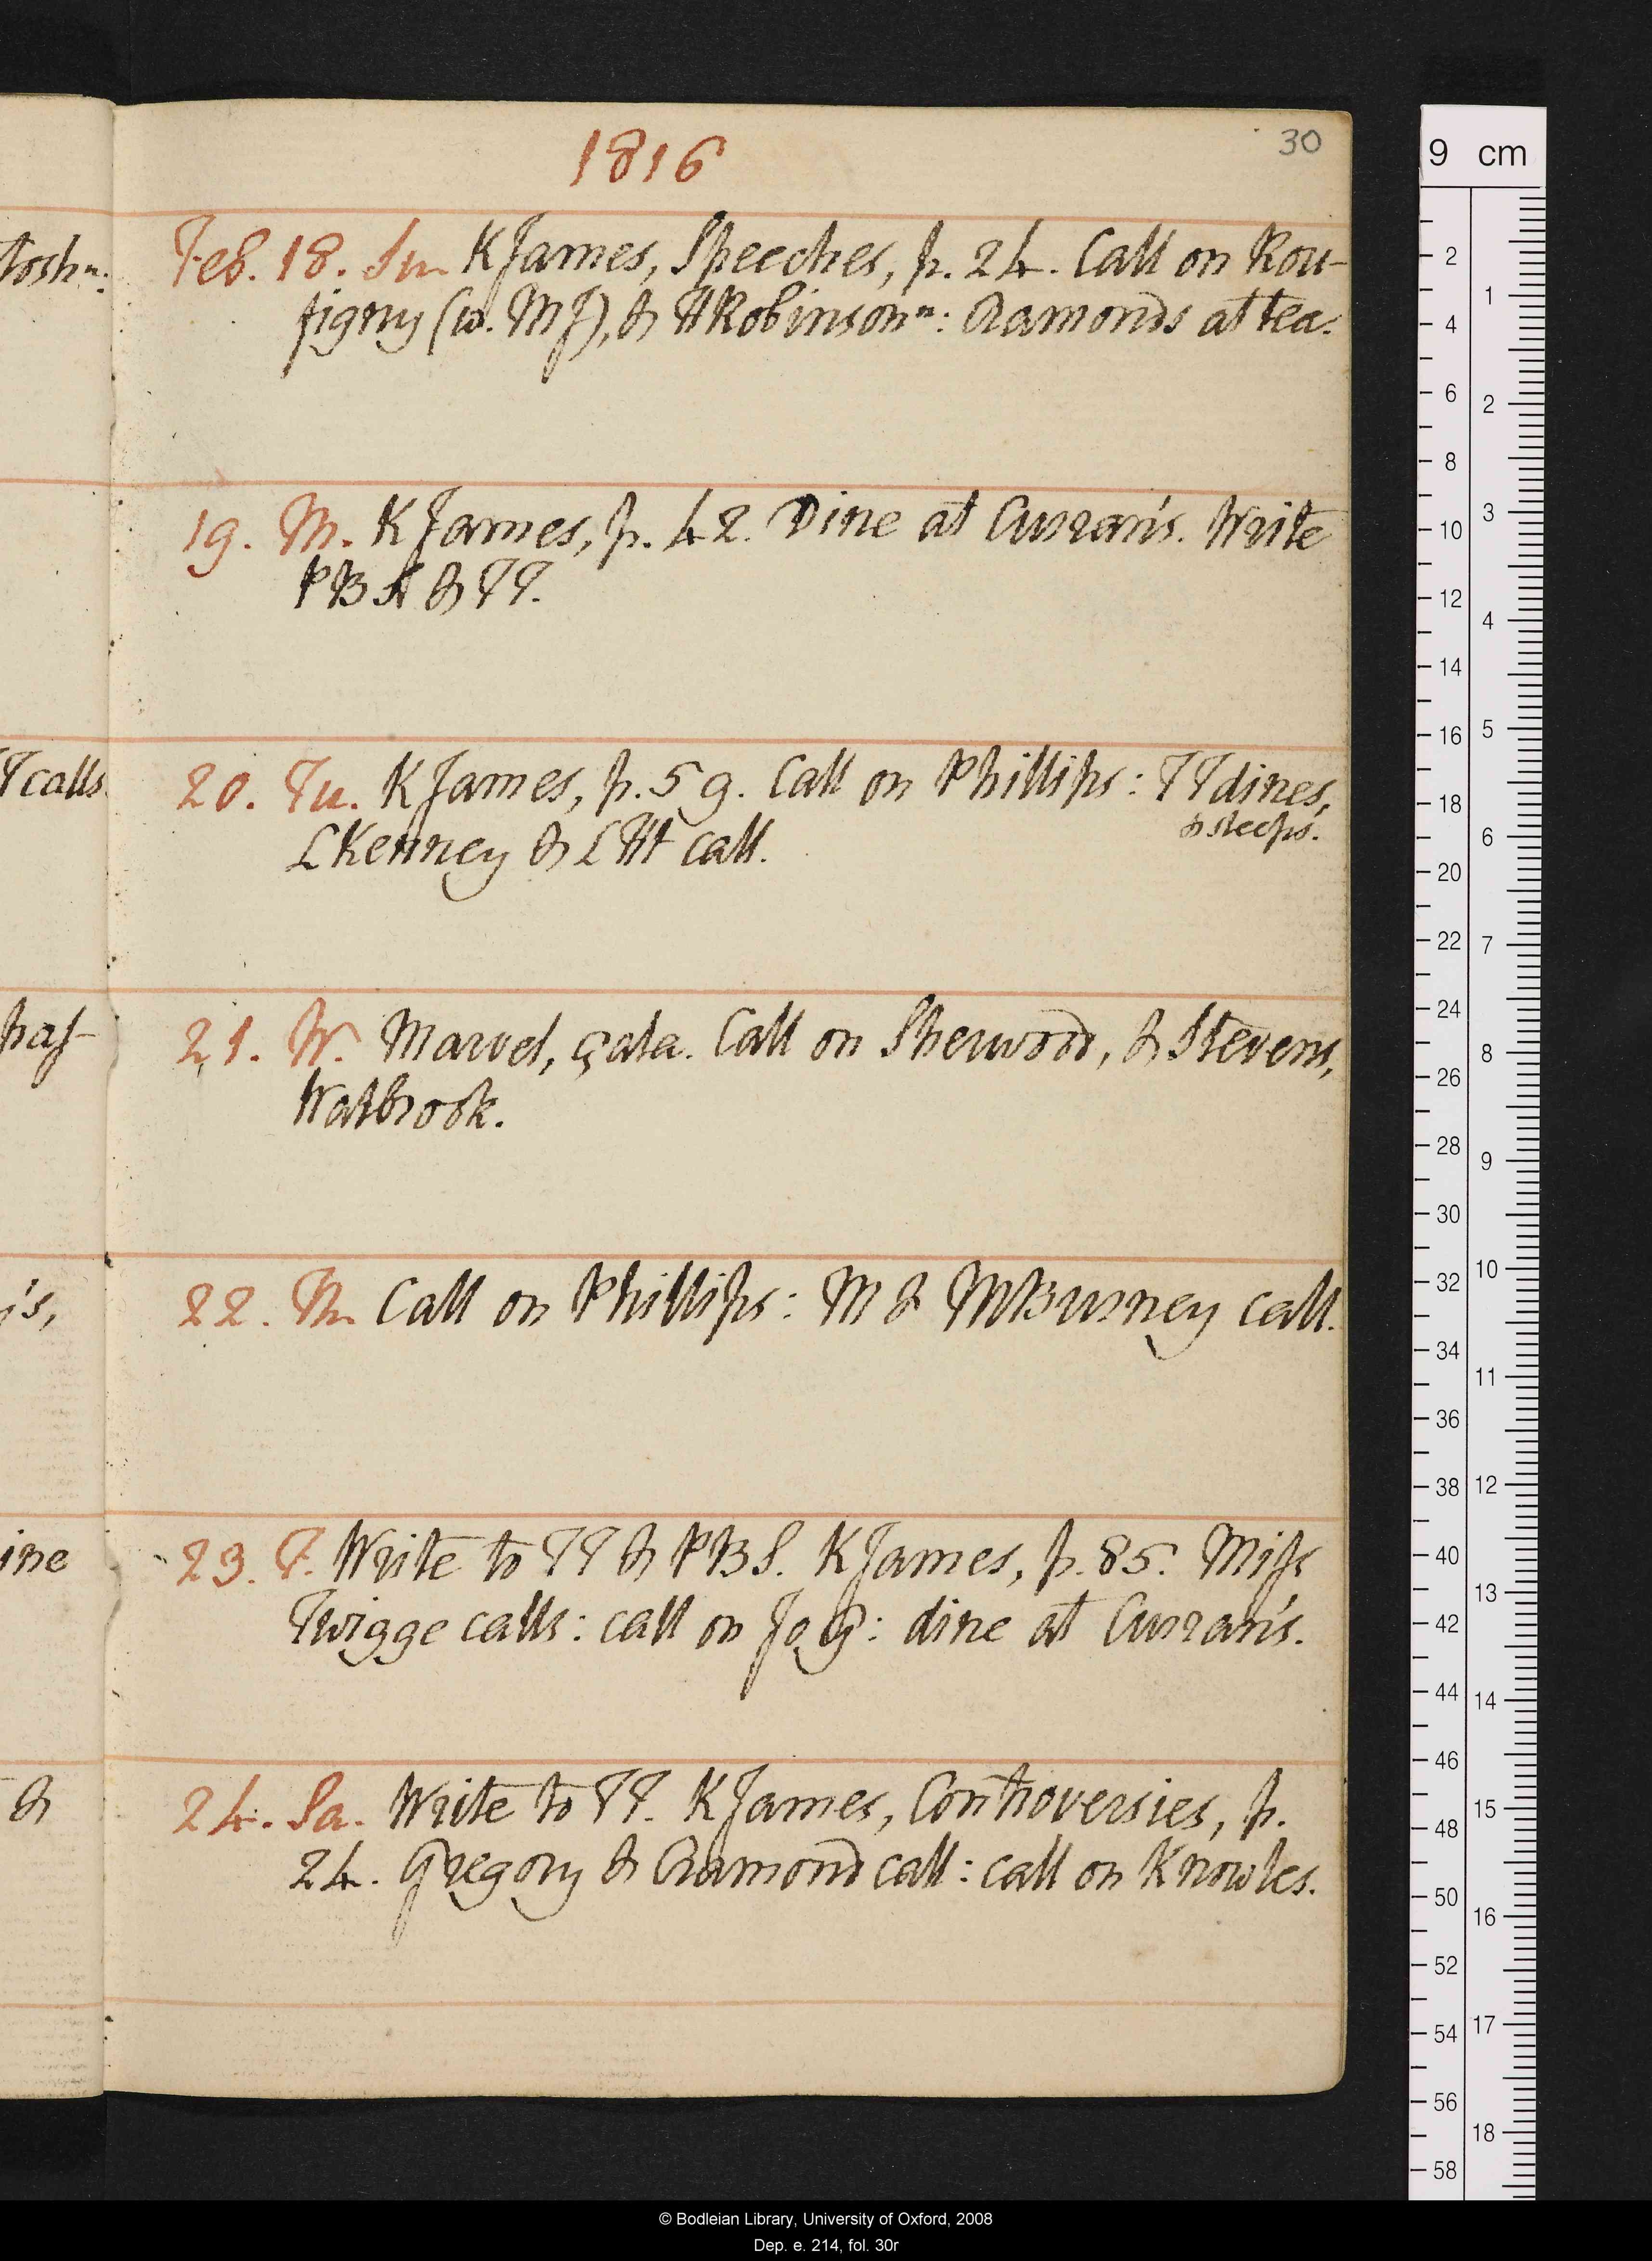 1816
30
Feb. 18. Su. KJames, Speeches, p. 24. Call on Rou-
figny (w. MJ), & HRobinson n: Aamonds at tea.
19. M. KJames, p. 42. Dine at Curran's. Write
PBS & TT.
20. Tu. KJames, p. 59. Call on Phillips: TT dines,
& sleeps.
LKenney & LHt call.
21. W. Marvel, çala. Call on Sherwood, & Stevens,
Walbrook.
22. Th. Call on Phillips: M & MBurney call.
23. F. Write to TT & PBS. KJames, p. 85. Miss
Twigge calls: call on Jo G: dine at Curran's.
24. Sa. Write to TT. KJames, Controversies, p.
24. Gregory & Aamond call: call on Knowles.
tosh n:
T calls.
paf-
's,
ine
&
9 cm
2
4
6
8
10
12
14
16
18
20
22
24
26
28
30
32
34
36
38
40
42
44
46
48
50
52
54
56
58
1
2
3
4
5
6
7
8
9
10
11
12
13
14
15
16
17
18
© Bodleian Library, University of Oxford, 2008
Dep. e. 214, fol. 30r